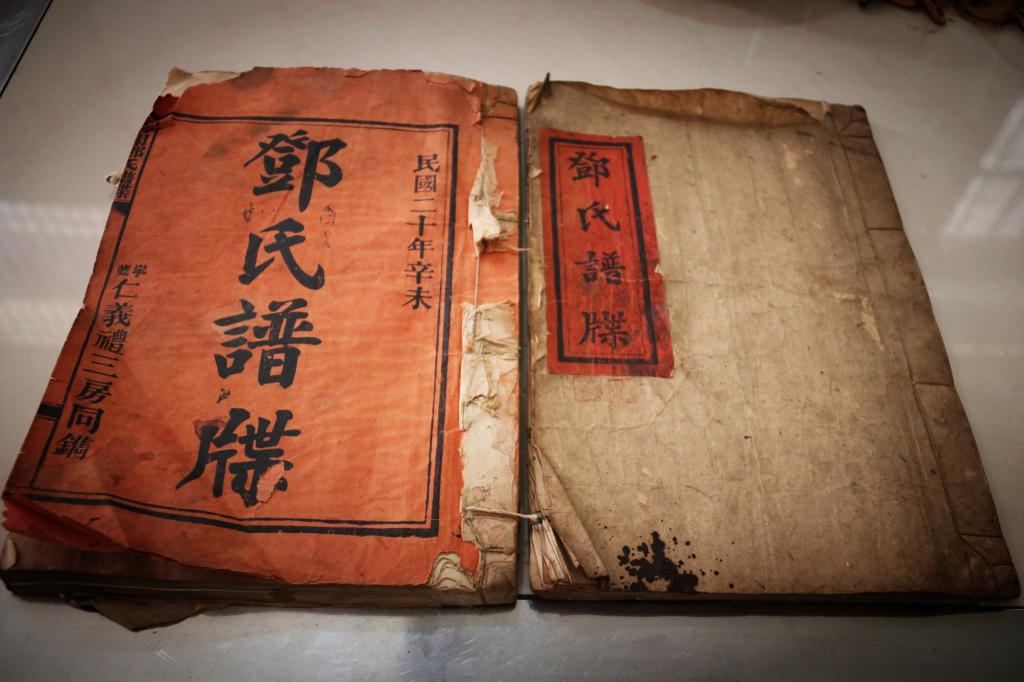 民國二十年辛未
鄧氏譜牒
仁義禮三房同鐫
鄧氏譜牒